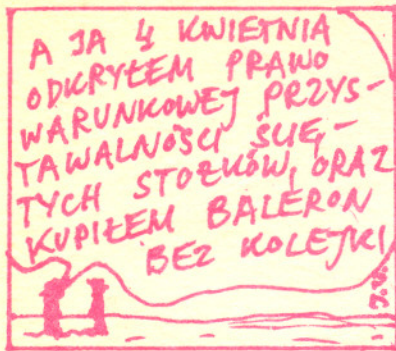 A JA 4 KWIETNIA
ODKRYŁEM PRAWO
WARUNKOWEJ PRZYS-
TAWALNOŚCI ŚCIĘ-
TYCH STOŻKÓW, ORAZ
KUPIŁEM BALERON
BEZ KOLEJKI
J.W.